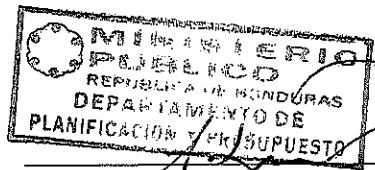 MINISTERIO
PUBLICO
REPUBLICA DE HONDURAS
DEPARTAMENTO DE
PLANIFICACIÓN Y PRESUPUESTO